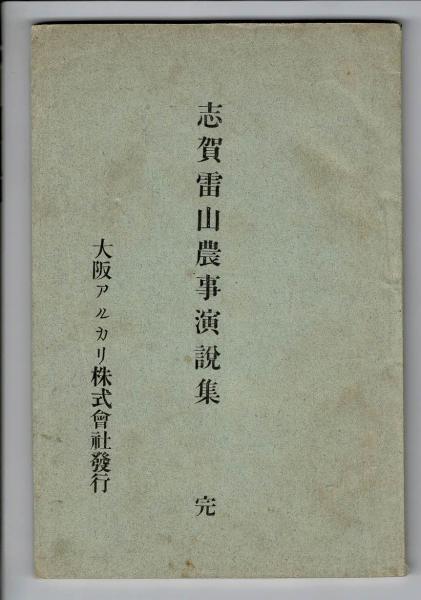 志賀雷山農事演說集 完
大阪アルカリ株式會社發行